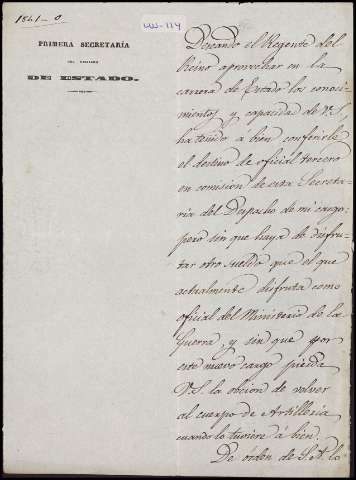 1841-0
LUS-114
PRIMERA SECRETARÍA
DEL DESPACHO
DE ESTADO.
Deseando el Regente del
Reino aprovechar en la
carrera de Estado los conoci-
mientos y capacidad de V.S.,
ha tenido à bien conferirle
el destino de oficial tercero
en comision de esta Secreta-
ría del Despacho de mi cargo,
pero sin que haya de disfru-
tar otro sueldo que el que
actualmente disfruta como
oficial del Ministerio de la
Guerra, y sin que por
este nuevo cargo pierda
V.S. la opcion de volver
al cuerpo de Artillería
cuando lo tuviere à bien.
De órden de S.A. lo